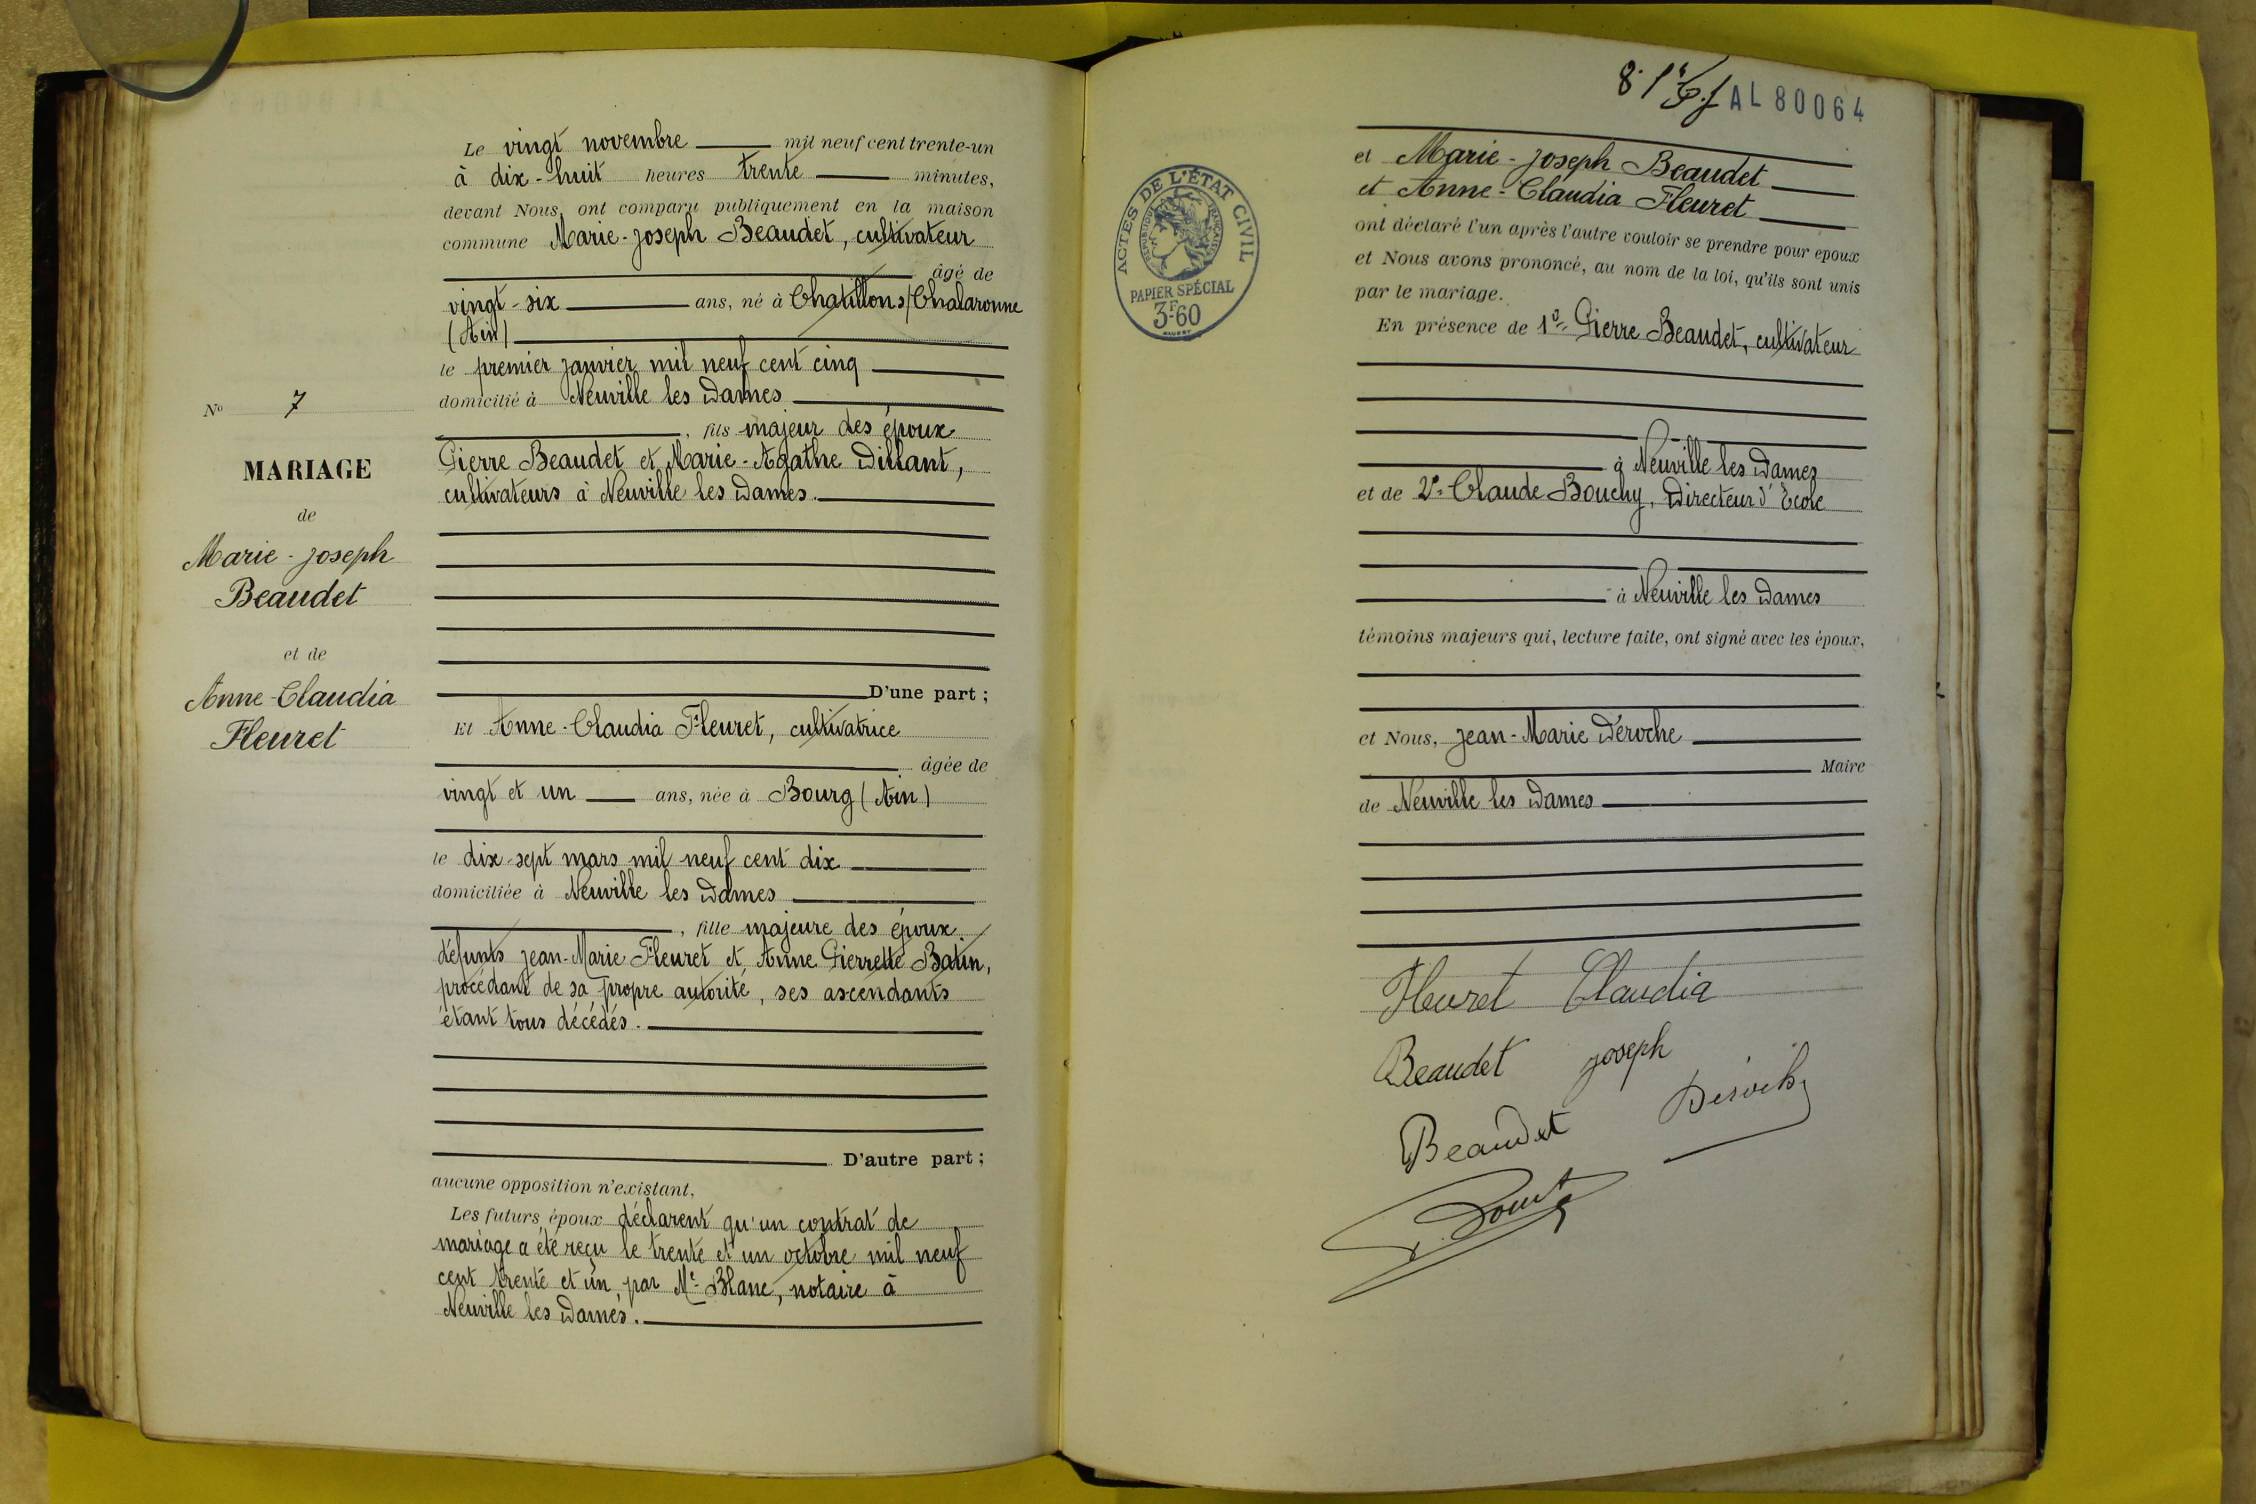 Nº 7
MARIAGE
de
Marie-Joseph
Beaudet
et de
Anne-Claudia
Fleuret
Le vingt novembre mil neuf cent trente-un
à dix-huit heures trente minutes,
devant Nous, ont comparu publiquement en la maison
commune Marie-Joseph Beaudet, cultivateur
âgé de
vingt-six ans, né à Chatillon s/Chalaronne
(Ain)
le premier janvier mil neuf cent cinq
domicilié à Neuville les Dames
, fils majeur des époux
Pierre Beaudet et Marie-Agathe Dillant,
cultivateurs à Neuville les Dames.
D'une part ;
Et Anne-Claudia Fleuret, cultivatrice
âgée de
vingt et un ans, née à Bourg (Ain)
le dix-sept mars mil neuf cent dix
domiciliée à Neuville les Dames
, fille majeure des époux
défunts Jean-Marie Fleuret et Anne Pierrette Batin,
procédant de sa propre autorité, ses ascendants
étant tous décédés.
D'autre part ;
aucune opposition n'existant,
Les futurs époux déclarent qu'un contrat de
mariage a été reçu le trente et un octobre mil neuf
cent trente et un par Me Blanc, notaire à
Neuville les Dames.
AL 80064
ACTES DE L'ÉTAT CIVIL
RÉPUBLIQUE FRANÇAISE
PAPIER SPÉCIAL
3F.60
et Marie-Joseph Beaudet
et Anne-Claudia Fleuret
ont déclaré l'un après l'autre vouloir se prendre pour époux
et Nous avons prononcé, au nom de la loi, qu'ils sont unis
par le mariage.
En présence de 1º= Pierre Beaudet, cultivateur
à Neuville les Dames
et de 2º= Claude Bouchy, Directeur d'Ecole
à Neuville les Dames
témoins majeurs qui, lecture faite, ont signé avec les époux,
et Nous, Jean-Marie Déroche
Maire
de Neuville les Dames
Fleuret Claudia
Beaudet Joseph
Beaudet